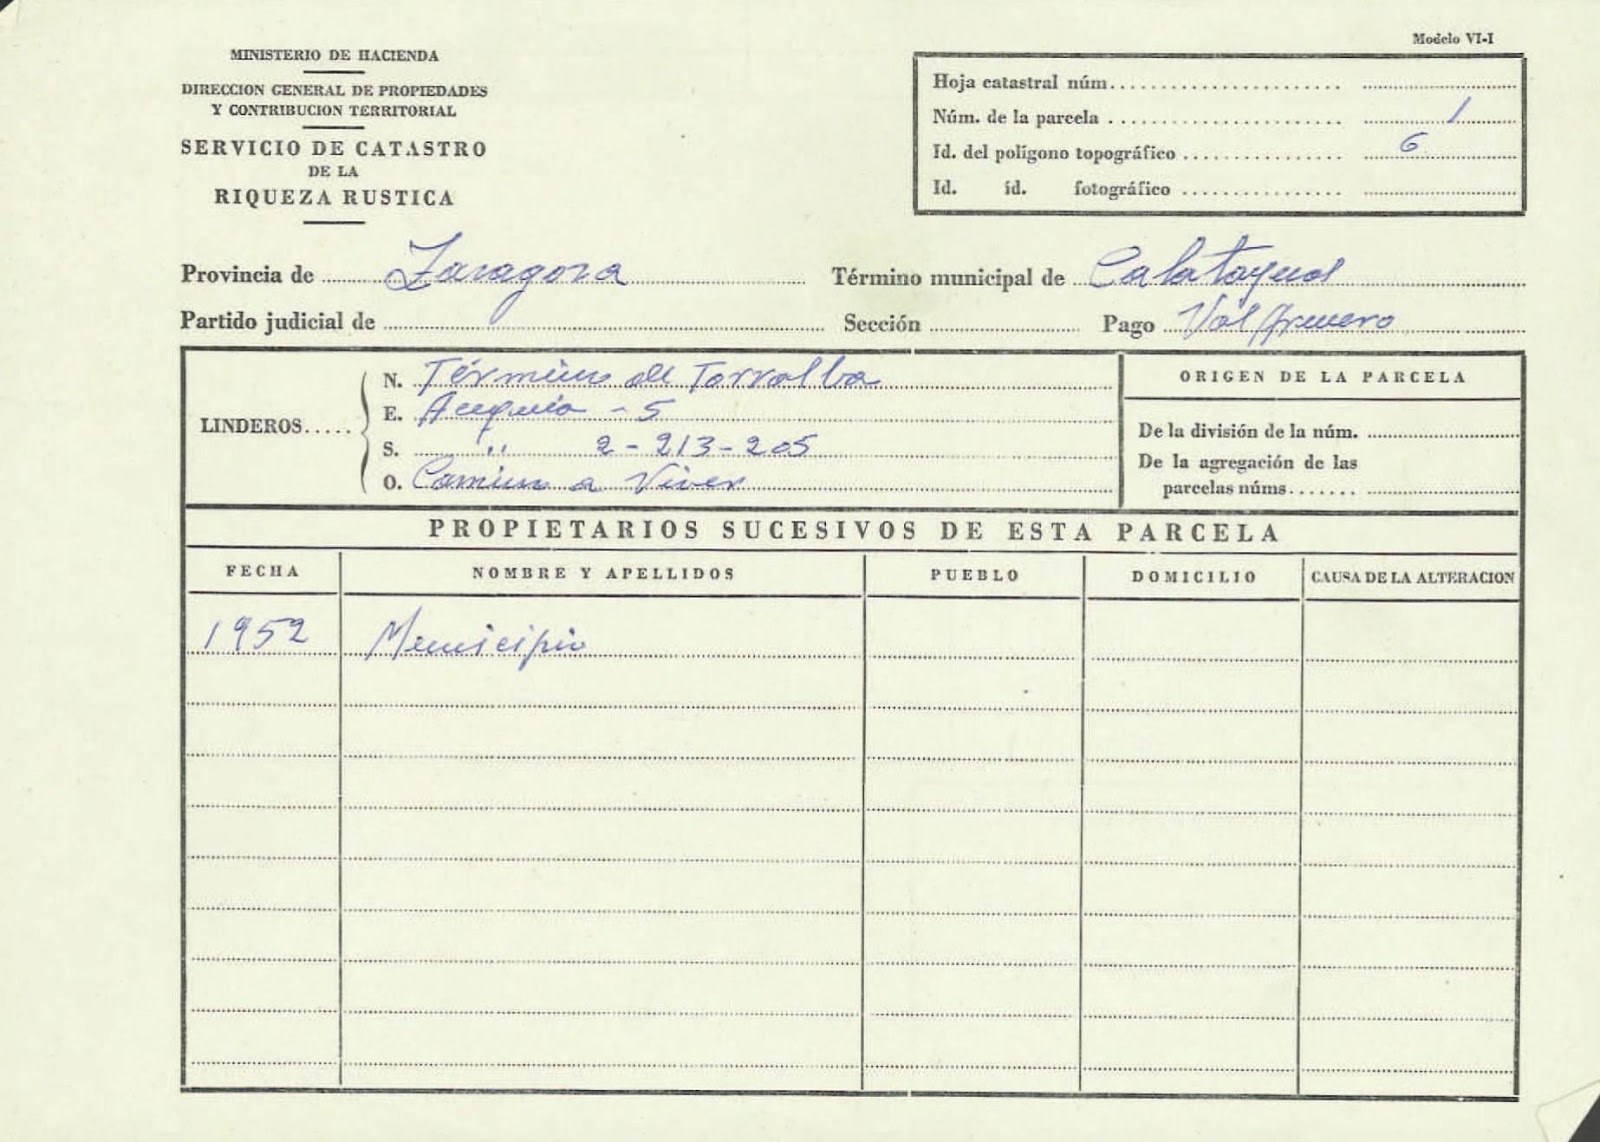 Modelo VI-I
MINISTERIO DE HACIENDA
DIRECCION GENERAL DE PROPIEDADES
Y CONTRIBUCION TERRITORIAL
SERVICIO DE CATASTRO
DE LA
RIQUEZA RUSTICA
Hoja catastral núm.
Núm. de la parcela 1
Id. del polígono topográfico 6
Id. íd. fotográfico
Provincia de Zaragoza Término municipal de Calatayud
Partido judicial de Sección Pago Valprimero
LINDEROS
N. Término de Torralba
E. Acequia - 5
S. " 2-213-205
O. Camino a Viver
ORIGEN DE LA PARCELA
De la división de la núm.
De la agregación de las
parcelas núms.
PROPIETARIOS SUCESIVOS DE ESTA PARCELA
FECHA NOMBRE Y APELLIDOS PUEBLO DOMICILIO CAUSA DE LA ALTERACION
1952 Municipio